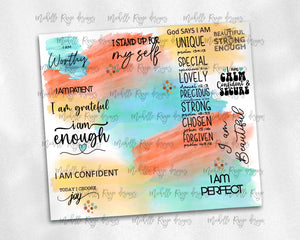 I AM
Worthy
I STAND UP FOR
my self
God SAYS I AM
UNIQUE
SPECIAL
LOVELY
PRECIOUS
STRONG
CHOSEN
FORGIVEN
BEAUTIFUL
STRONG
ENOUGH
I am
CALM
Confident &
SECURE
I AM PATIENT
I am grateful
i am
enough
I am
Beautiful
I AM CONFIDENT
TODAY I CHOOSE
joy
I AM
PERFECT
Michelle Raye designs